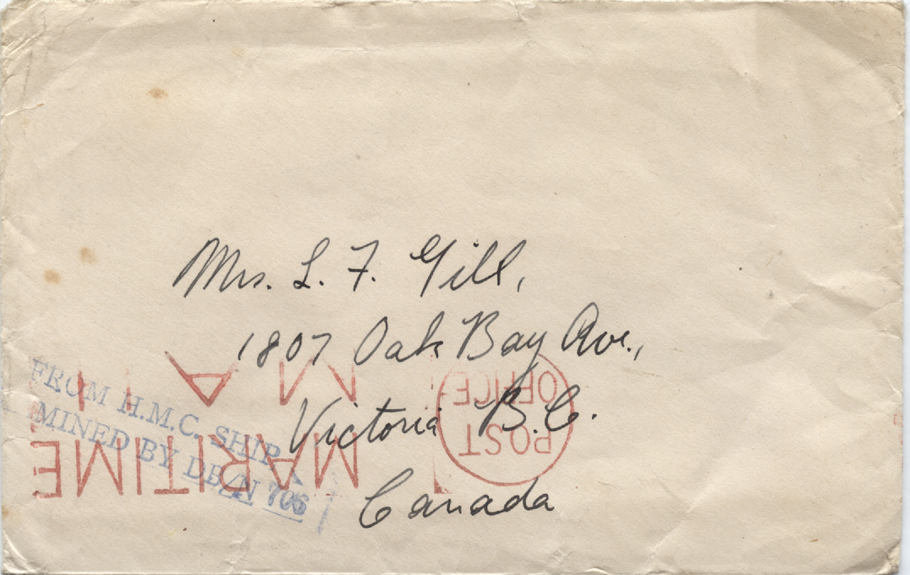 Mrs. L. F. Gill,
1807 Oak Bay Ave.,
Victoria B.C.
Canada
FROM H.M.C. SHIP
MINED BY DB/N 706
POST
OFFICE
MARITIME
MA